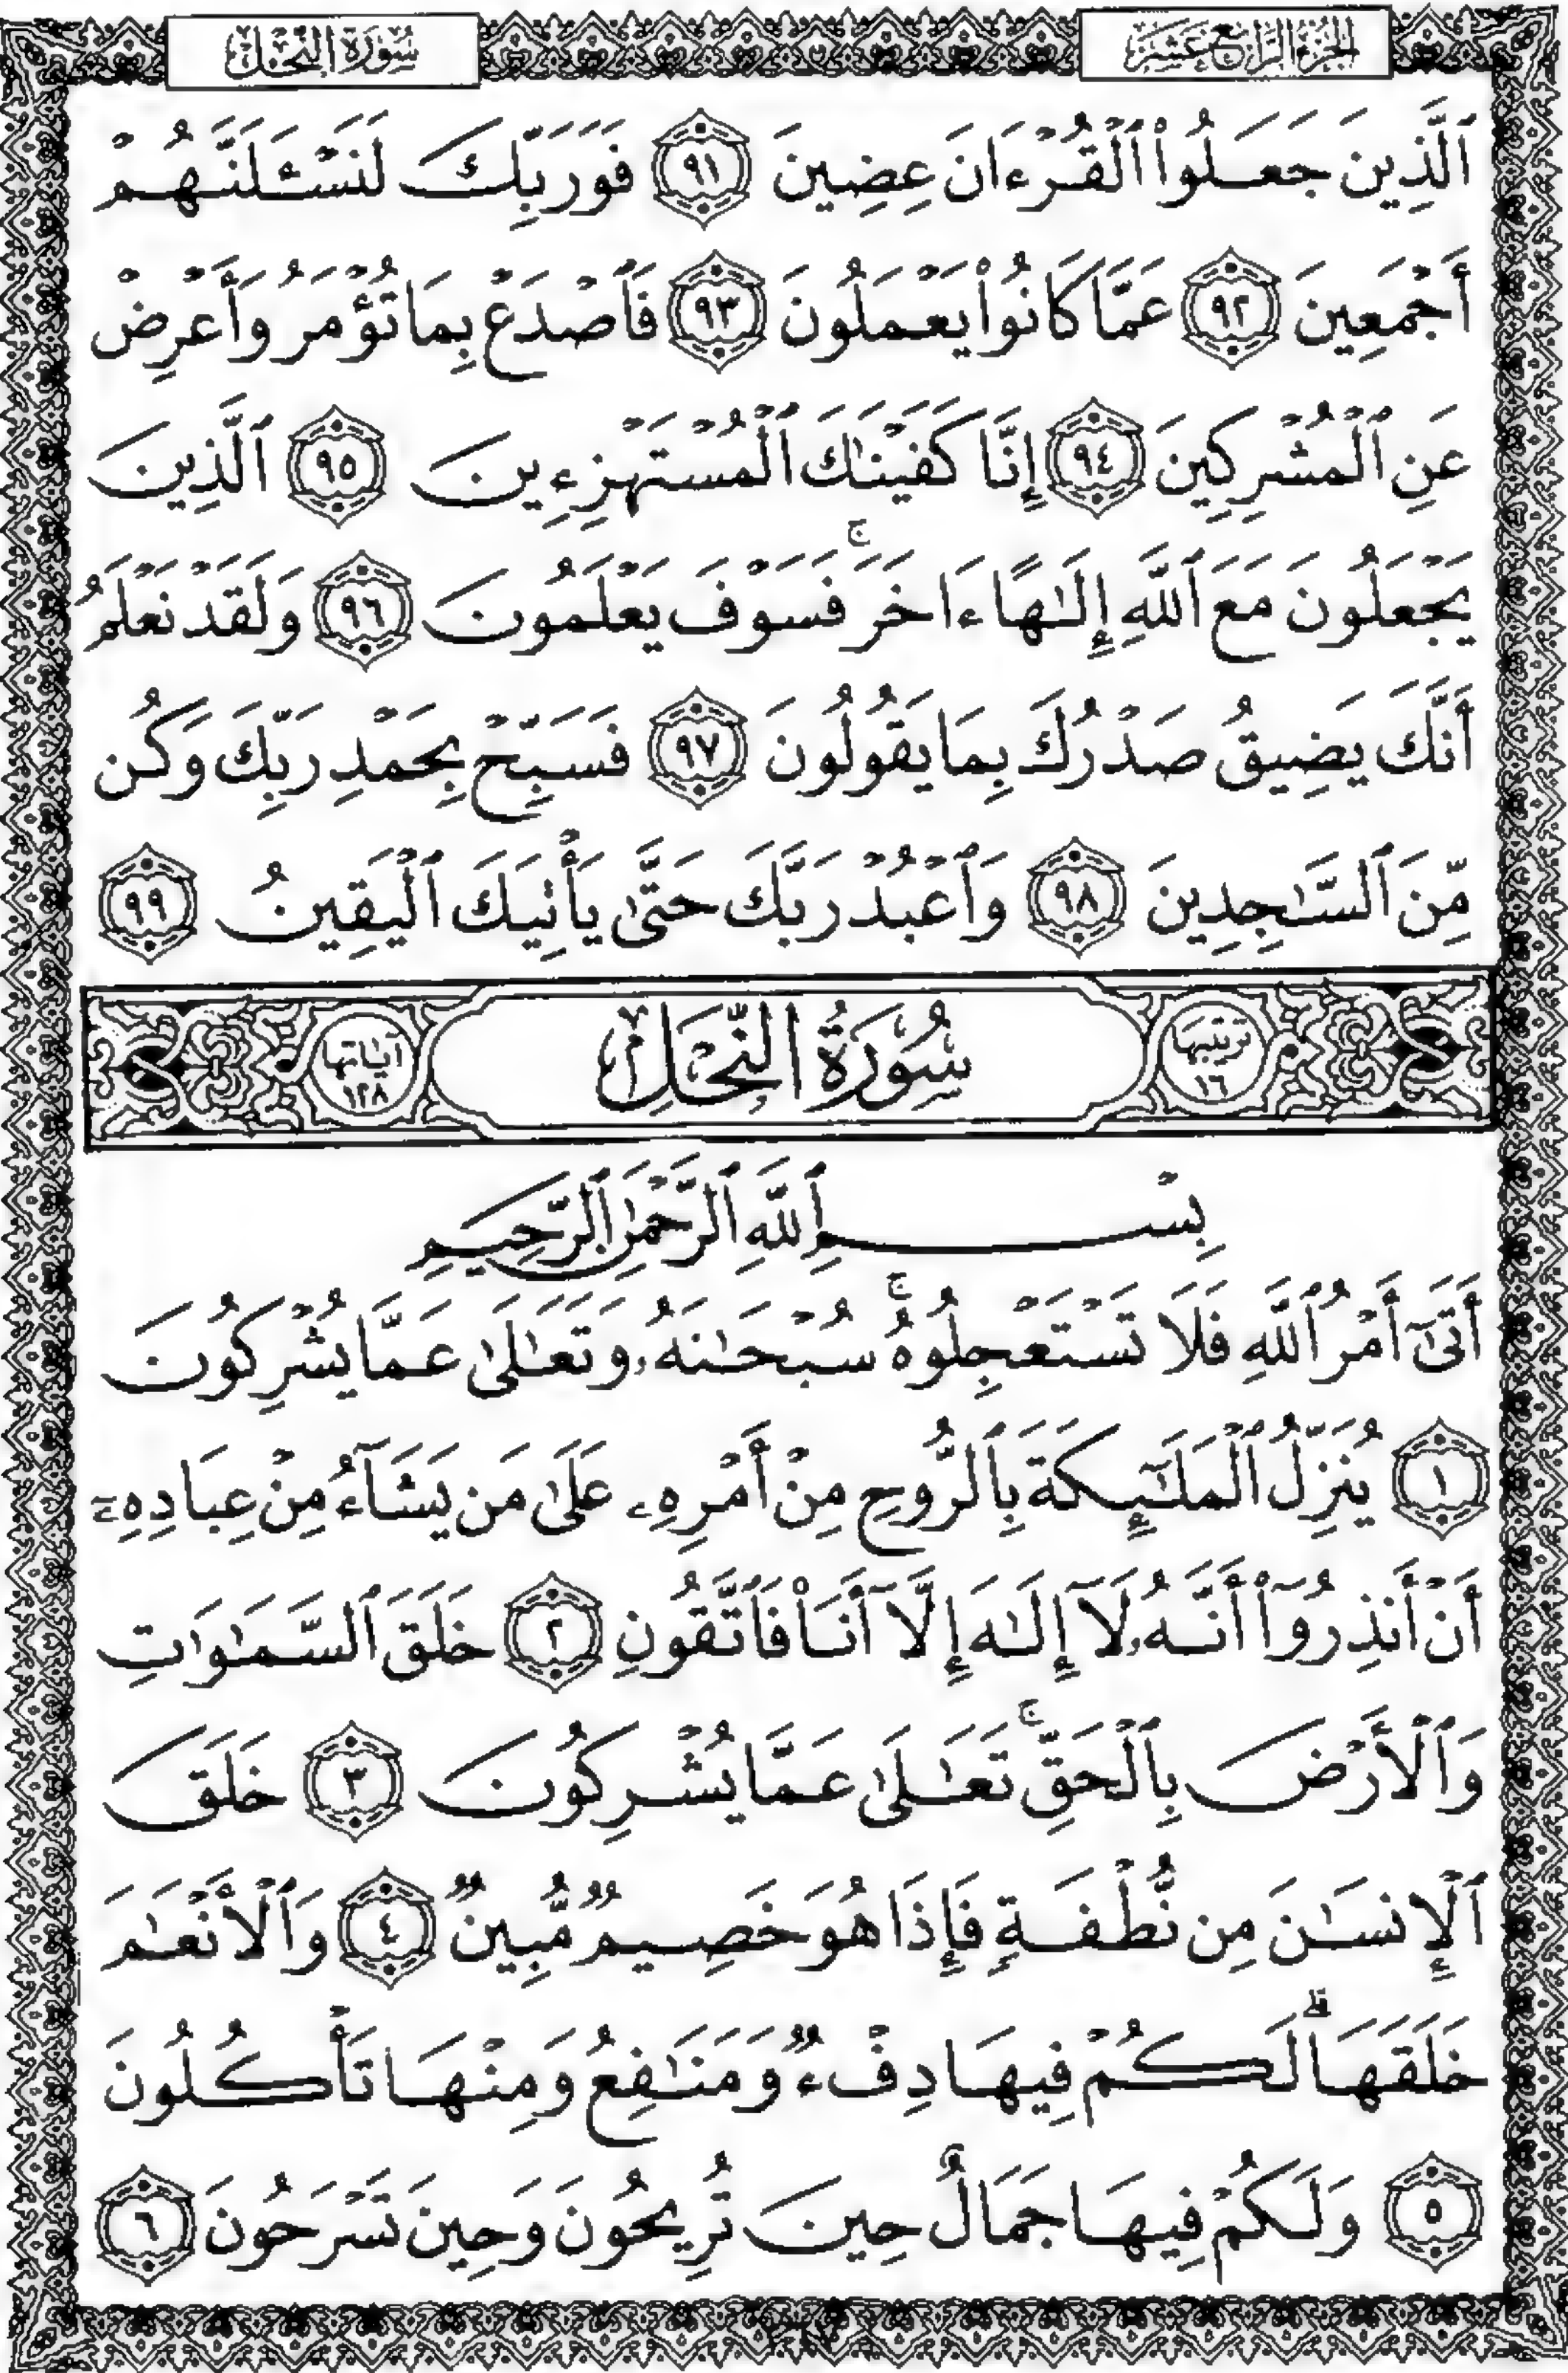 الجزء الرابع عشر
سورة النحل
ٱلَّذِينَ جَعَلُوا۟ ٱلْقُرْءَانَ عِضِينَ ٩١ فَوَرَبِّكَ لَنَسْـَٔلَنَّهُمْ
أَجْمَعِينَ ٩٢ عَمَّا كَانُوا۟ يَعْمَلُونَ ٩٣ فَٱصْدَعْ بِمَا تُؤْمَرُ وَأَعْرِضْ
عَنِ ٱلْمُشْرِكِينَ ٩٤ إِنَّا كَفَيْنَـٰكَ ٱلْمُسْتَهْزِءِينَ ٩٥ ٱلَّذِينَ
يَجْعَلُونَ مَعَ ٱللَّهِ إِلَـٰهًا ءَاخَرَ ۚ فَسَوْفَ يَعْلَمُونَ ٩٦ وَلَقَدْ نَعْلَمُ
أَنَّكَ يَضِيقُ صَدْرُكَ بِمَا يَقُولُونَ ٩٧ فَسَبِّحْ بِحَمْدِ رَبِّكَ وَكُن
مِّنَ ٱلسَّـٰجِدِينَ ٩٨ وَٱعْبُدْ رَبَّكَ حَتَّىٰ يَأْتِيَكَ ٱلْيَقِينُ ٩٩
ترتيبها ١٦ سُورَةُ النَّحْلِ آياتها ١٢٨
بِسْمِ ٱللَّهِ ٱلرَّحْمَـٰنِ ٱلرَّحِيمِ
أَتَىٰٓ أَمْرُ ٱللَّهِ فَلَا تَسْتَعْجِلُوهُ ۚ سُبْحَـٰنَهُۥ وَتَعَـٰلَىٰ عَمَّا يُشْرِكُونَ
١ يُنَزِّلُ ٱلْمَلَـٰٓئِكَةَ بِٱلرُّوحِ مِنْ أَمْرِهِۦ عَلَىٰ مَن يَشَآءُ مِنْ عِبَادِهِۦٓ
أَنْ أَنذِرُوٓا۟ أَنَّهُۥ لَآ إِلَـٰهَ إِلَّآ أَنَا۠ فَٱتَّقُونِ ٢ خَلَقَ ٱلسَّمَـٰوَٰتِ
وَٱلْأَرْضَ بِٱلْحَقِّ ۚ تَعَـٰلَىٰ عَمَّا يُشْرِكُونَ ٣ خَلَقَ
ٱلْإِنسَـٰنَ مِن نُّطْفَةٍ فَإِذَا هُوَ خَصِيمٌ مُّبِينٌ ٤ وَٱلْأَنْعَـٰمَ
خَلَقَهَا ۗ لَكُمْ فِيهَا دِفْءٌ وَمَنَـٰفِعُ وَمِنْهَا تَأْكُلُونَ
٥ وَلَكُمْ فِيهَا جَمَالٌ حِينَ تُرِيحُونَ وَحِينَ تَسْرَحُونَ ٦